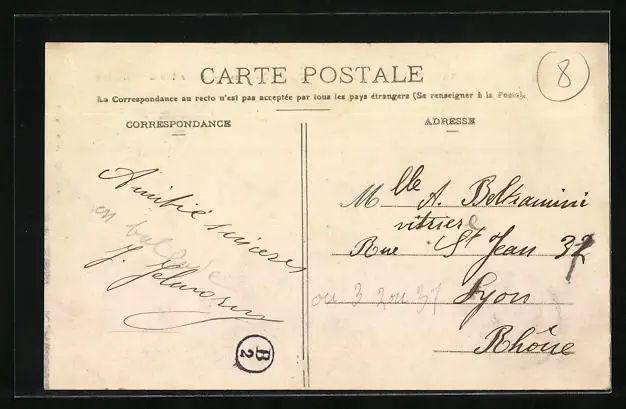 CARTE POSTALE
8
La Correspondance au recto n'est pas acceptée par tous les pays étrangers (Se renseigner à la Poste).
CORRESPONDANCE
Amitié sinceres
en balade
J.
B
2
ADRESSE
Mlle A. Beltramini
vitriere
Rue St Jean 37
ou 32 ou 37
Lyon
Rhône